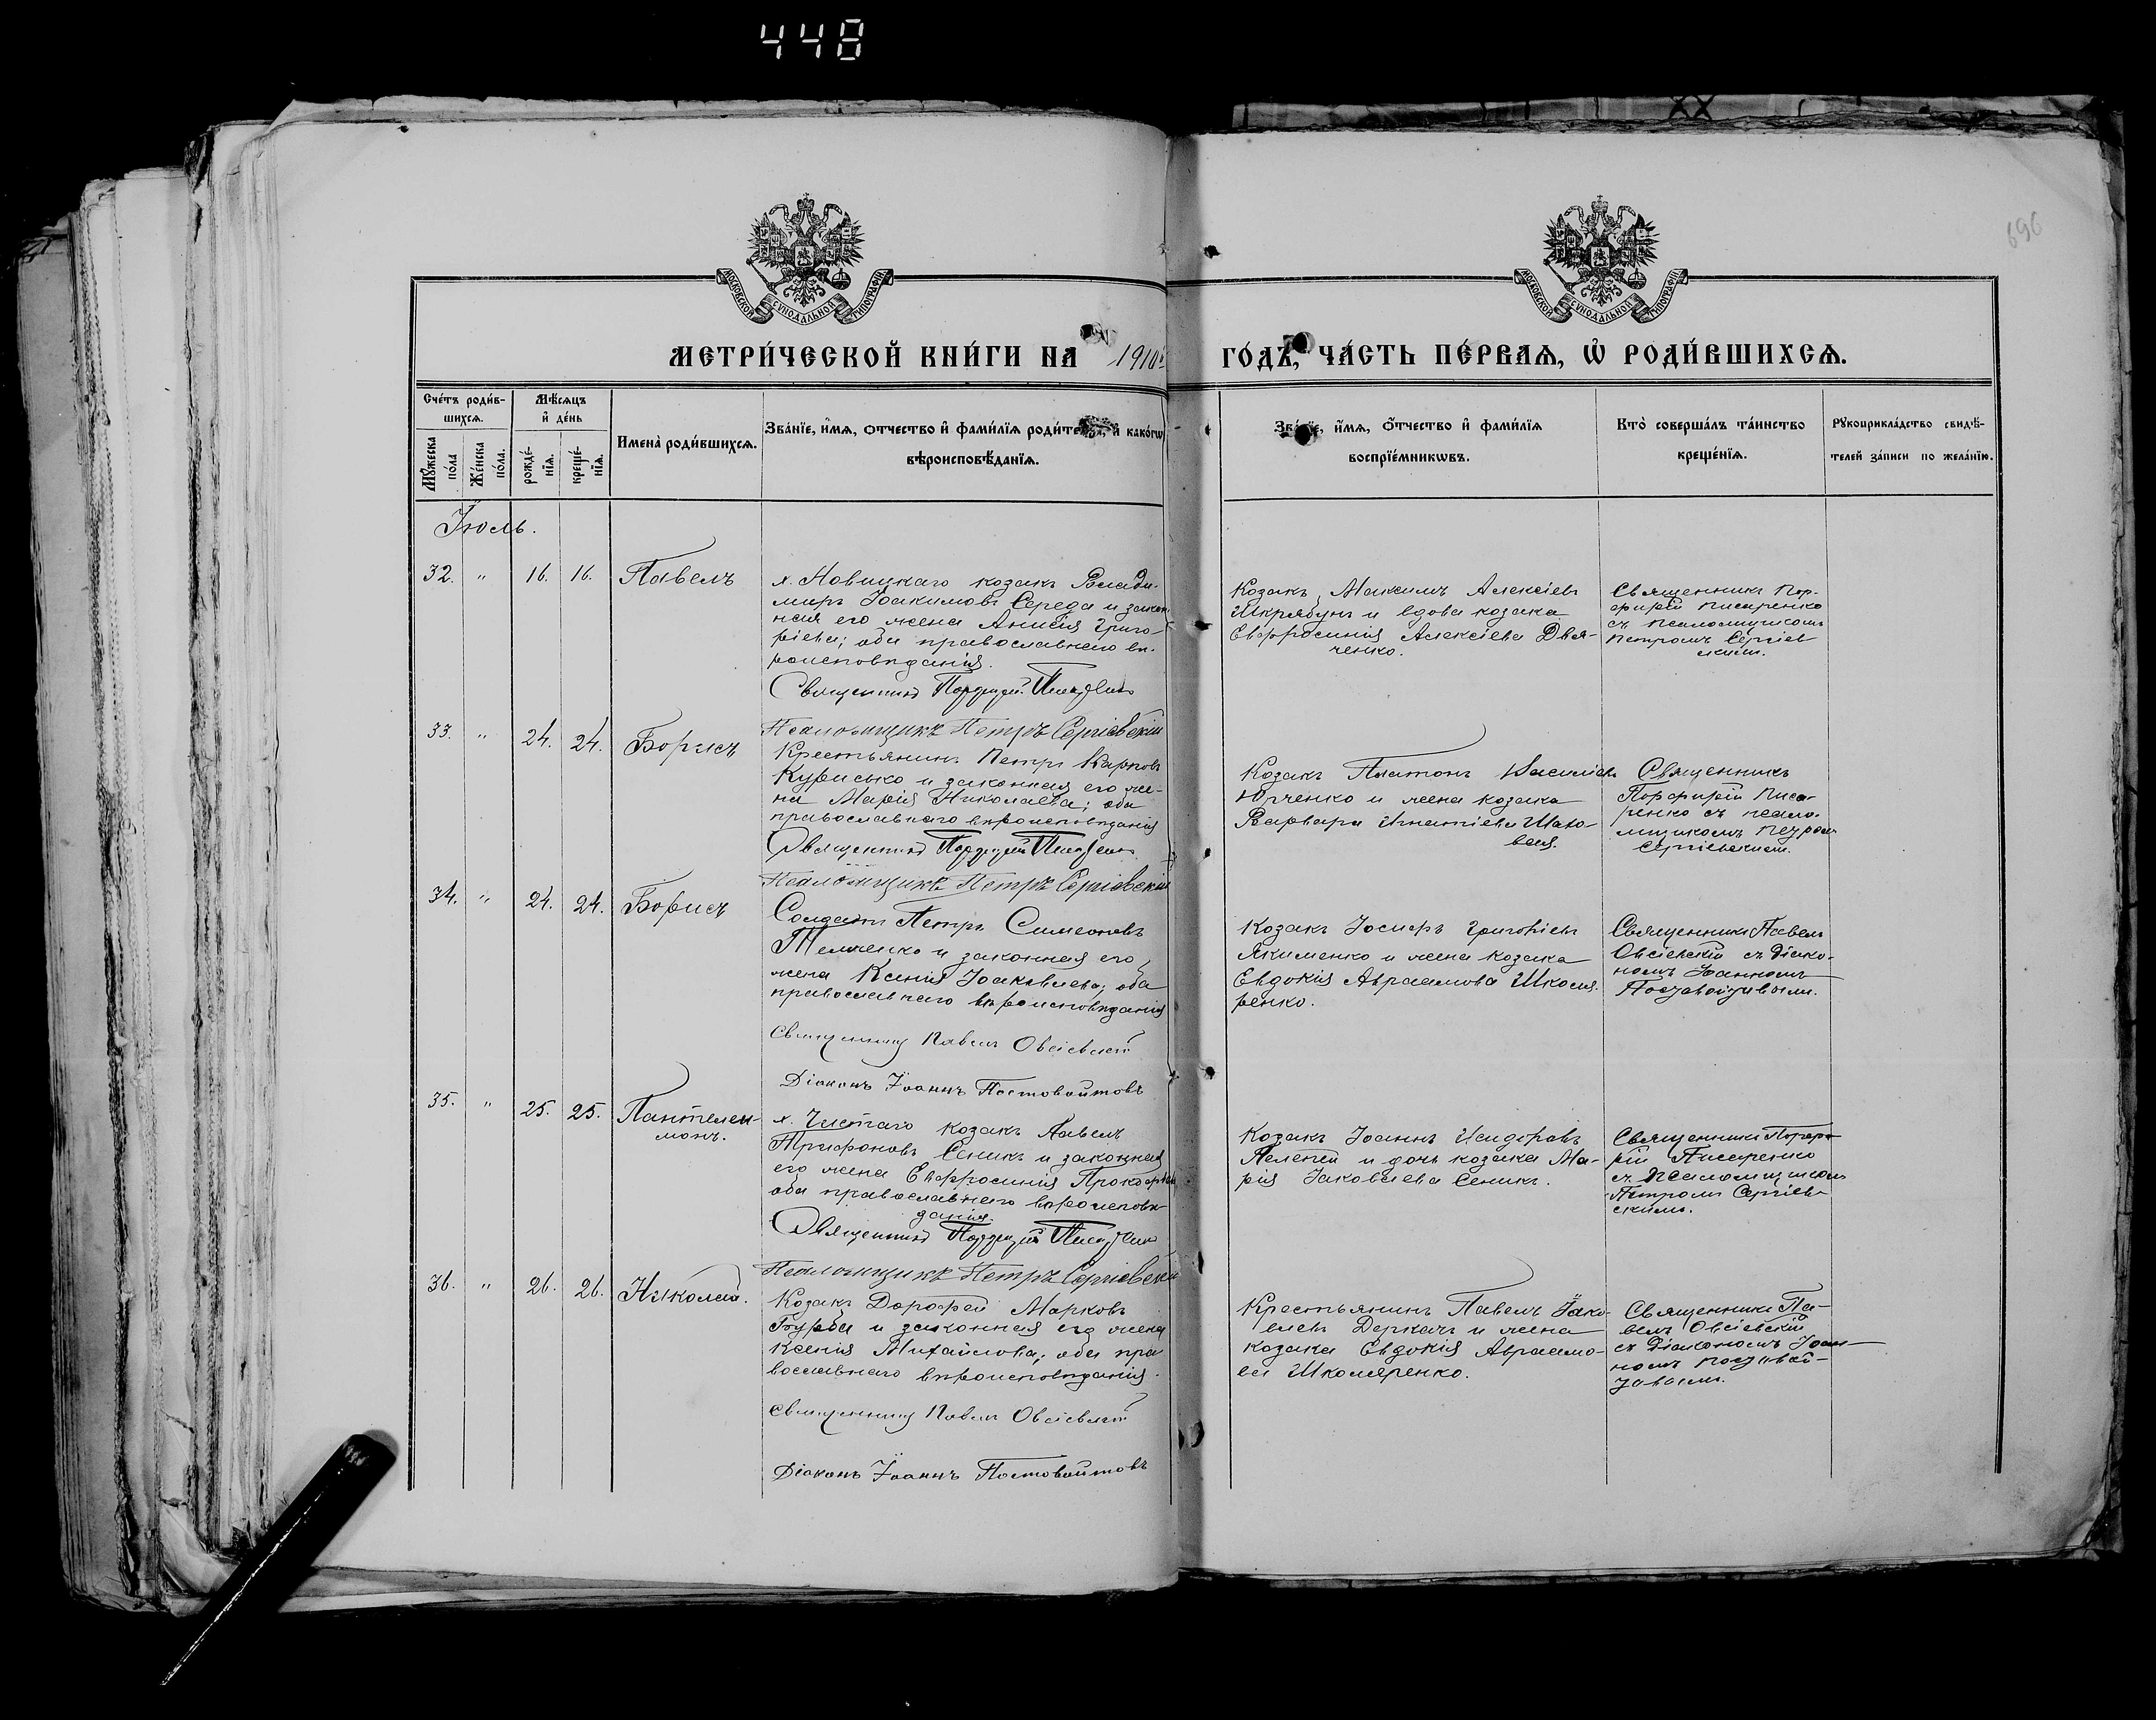 448
696
МОСКОВСКОЙ СУНОДАЛЬНОЙ ТИПОГРАФІИ
МОСКОВСКОЙ СУНОДАЛЬНОЙ ТИПОГРАФІИ
МЕТРИ́ЧЕСКОЙ КНИ́ГИ НА 1910й ГО́ДЪ, ЧА́СТЬ ПЕ́РВАѦ, Ѡ РОДИ́ВШИХСѦ.
Сче́тъ роди́в-
шихсѧ.
Мꙋжеска по́ла
Же́нска по́ла.
Мѣ́сѧцъ
и҆ де́нь
рожде́-
нїѧ.
креще́-
нїѧ.
Имена̀ роди́вшихсѧ.
Зва́нїе, и҆́мѧ, ѻтчество и҆ фами́лїѧ роди́телей, и҆ како́гѡ
вѣроисповѣ́данїѧ.
Зва́нїе, и҆́мѧ, ѻтчество и҆ фами́лїѧ
воспрїе́мникѡвъ.
Кто̀ соверша́лъ та́инство
креще́нїѧ.
Рꙋкоприкла́дство свидѣ́-
телей за́писи по жела́нїю.
Іюль.
32. " 16. 16. Павелъ
х. Новицкаго козакъ Влади-
миръ Іоакимовъ Середа и закон
ная его жена Анисія Григо-
ріева; оба православнаго вѣ-
роисповѣданія.
Священникъ Порфирій Писаренко
Псаломщикъ Петръ Сергіевскій
Козакъ Максимъ Алексіевъ
Шкрябунъ и вдова козака
Евфросинія Алексіева Двя-
ченко.
Священникъ Пор-
фирій Писаренко
съ псаломщикомъ
Петромъ Сергіев
скимъ.
33. " 24. 24. Борисъ
Крестьянинъ Петръ Карповъ
Курисько и законная его же-
на Марія Николаева; оба
православнаго вѣроисповѣданія
Священникъ Порфирій Писаренко
Псаломщикъ Петръ Сергіевскій
Козакъ Платонъ Василіевъ
Юрченко и жена козака
Варвара Игнатіева Шахо-
вая.
Священникъ
Порфирій Писа-
ренко съ псало-
мщикомъ Петромъ
Сергіевскимъ.
34. " 24. 24. Борисъ
Солдатъ Петръ Симеоновъ
Телженко и законная его
жена Ксенія Іоаковлева; оба
православнаго вѣроисповѣданія
Священникъ Павелъ Овсіевскій
Діаконъ Іоаннъ Постовойтовъ
Козакъ Іосифъ Григоріевъ
Якименко и жена козака
Евдокія Авраамова Школя-
ренко.
Священникъ Павелъ
Овсіевскій съ Діако-
номъ Іоанномъ
Постовойтовымъ.
35. " 25. 25. Пантелеи-
монъ.
х. Чистаго козакъ Павелъ
Трифоновъ Сеникъ и законная
его жена Евфросинія Прокофьева
оба православнаго вѣроисповѣ-
данія.
Священникъ Порфирій Писаренко
Псаломщикъ Петръ Сергіевскій
Козакъ Іоаннъ Исидоровъ
Пелепей и дочь козака Ма-
рія Іаковлева Сеникъ.
Священникъ Порфи-
рій Писаренко
съ псаломщикомъ
Петромъ Сергіев-
скимъ.
36. " 26. 26. Николай.
Козакъ Дорофей Марковъ
Бурба и законная его жена
Ксенія Михайлова; оба пра
вославнаго вѣроисповѣданія.
Священникъ Павелъ Овсіевскій
Діаконъ Іоаннъ Постовойтовъ
Крестьянинъ Павелъ Іако-
влевъ Деркачъ и жена
козака Евдокія Авраамо-
ва Школяренко.
Священникъ Па-
велъ Овсіевскій
съ Діакономъ Іоан-
номъ Постовой-
товымъ.